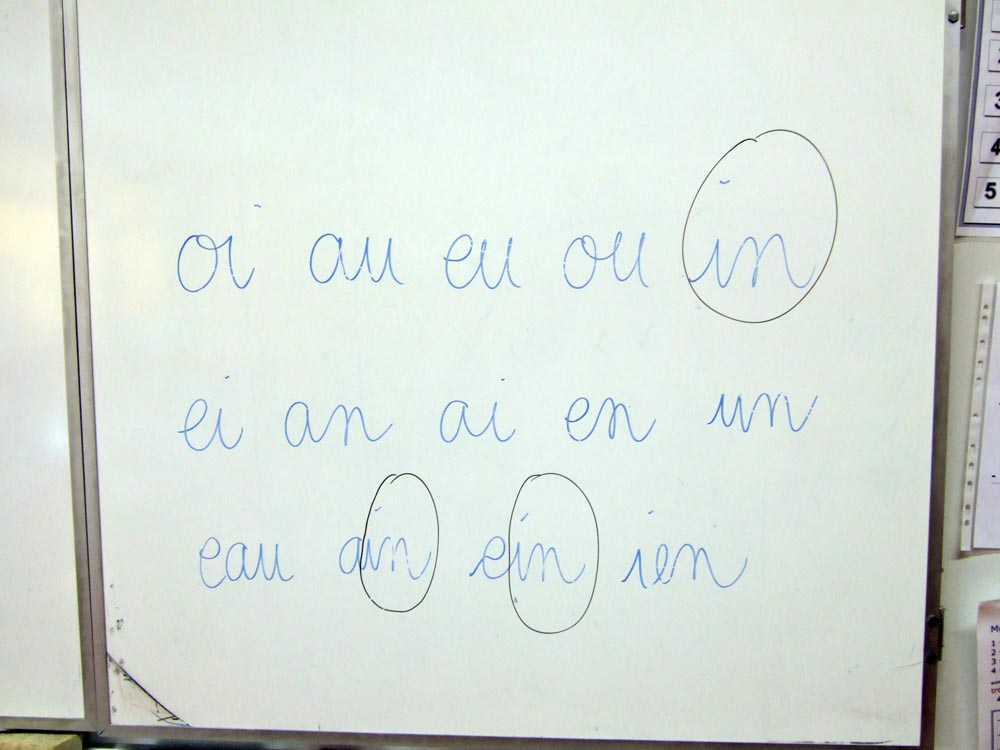 oi au eu ou in
ei an ai en un
eau ain ein ien
2
3
4
5